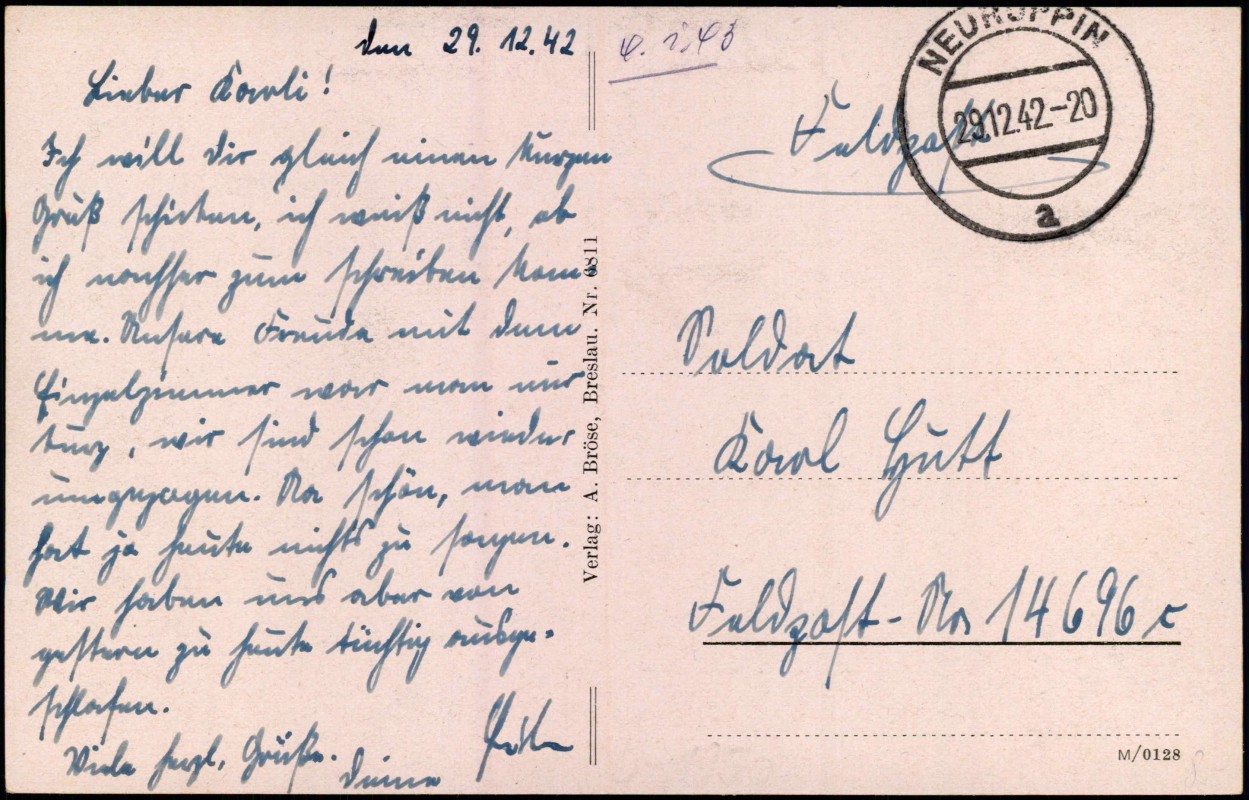 den 29. 12. 42
Lieber Karli!
Ich will Dir gleich einen kurzen
Gruß schicken, ich weiß nicht, ob
ich nachher zum schreiben kom-
me. Unsere Freude mit dem
Einzelzimmer war man nur
kurz, wir sind schon wieder
umgezogen. Na schön, man
hat ja heute nichts zu sagen.
Wir haben uns aber von
gestern zu heute tüchtig ausge-
schlafen.
Viele herzl. Grüße.
Deine
Verlag: A. Bröse, Breslau. Nr. 6811
NEURUPPIN
29.12.42.-20
a
Feldpost
Soldat
Karl Hütt
Feldpost-Nr 14696 c
M/0128